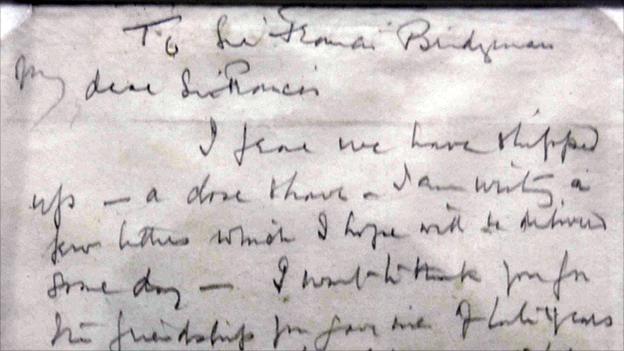 To Sir Francis Bridgeman
My dear Sir Francis
I fear we have shipped
up – a close shave – I am writing a
few letters which I hope will be delivered
some day – I want to thank you for
the friendship you gave me of late years